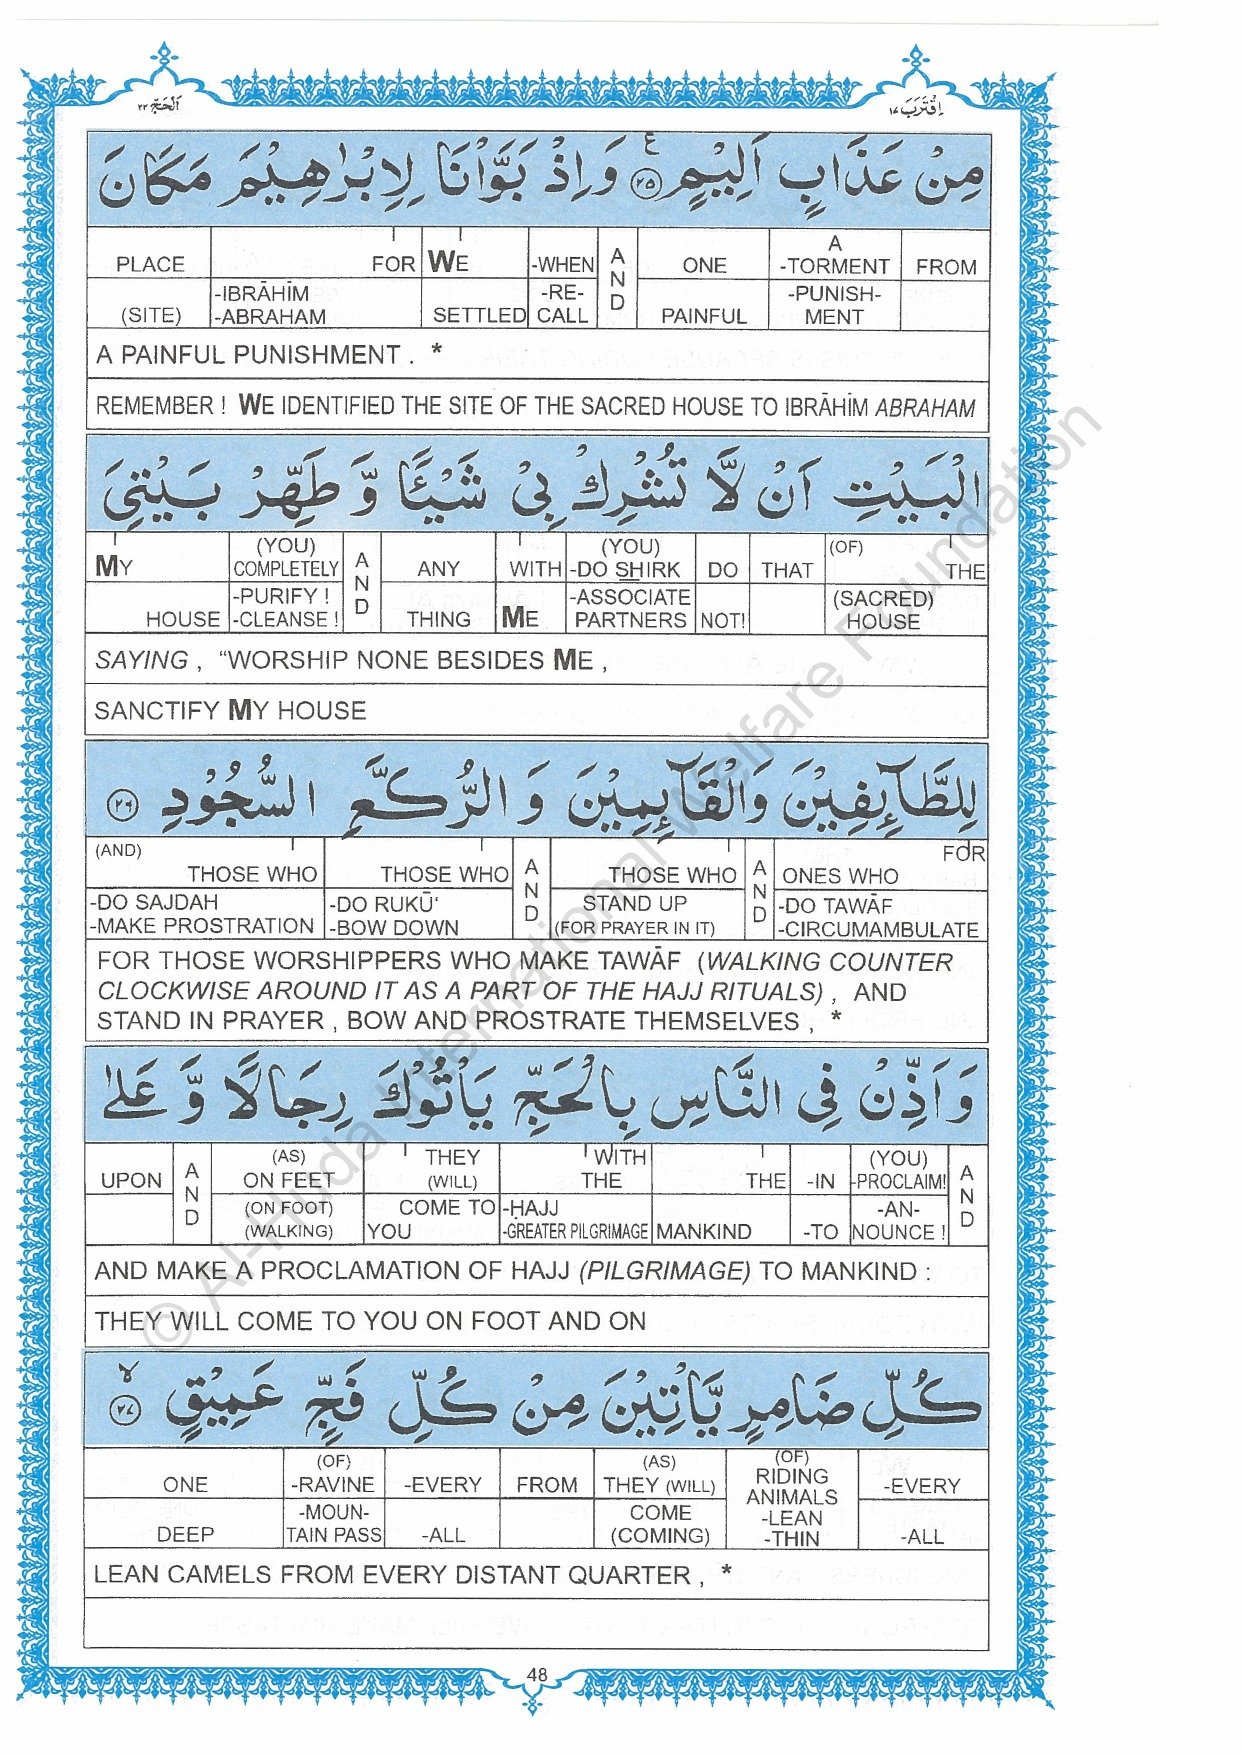 اَلْحَجّ ٢٢ اِقْتَرَبَ ١٧
مِنْ عَذَابٍ اَلِيْمٍ ع ٢٥ وَ اِذْ بَوَّاْنَا لِاِبْرٰهِيْمَ مَكَانَ
PLACE FOR WE -WHEN AND ONE A -TORMENT FROM
(SITE) -IBRĀHĪM -ABRAHAM SETTLED -RE-CALL PAINFUL -PUNISH-MENT
A PAINFUL PUNISHMENT . *
REMEMBER ! WE IDENTIFIED THE SITE OF THE SACRED HOUSE TO IBRĀHĪM ABRAHAM
الْبَيْتِ اَنْ لَّا تُشْرِكْ بِيْ شَيْـًٔا وَّ طَهِّرْ بَيْتِيَ
MY (YOU) COMPLETELY AND ANY WITH (YOU) -DO SHIRK DO THAT (OF) THE
HOUSE -PURIFY ! -CLEANSE ! THING ME -ASSOCIATE PARTNERS NOT! (SACRED) HOUSE
SAYING , “WORSHIP NONE BESIDES ME ,
SANCTIFY MY HOUSE
لِلطَّآئِفِيْنَ وَالْقَآئِمِيْنَ وَ الرُّكَّعِ السُّجُوْدِ ٢٦
(AND) THOSE WHO THOSE WHO AND THOSE WHO AND ONES WHO FOR
-DO SAJDAH -MAKE PROSTRATION -DO RUKŪ‘ -BOW DOWN STAND UP (FOR PRAYER IN IT) -DO TAWĀF -CIRCUMAMBULATE
FOR THOSE WORSHIPPERS WHO MAKE TAWĀF (WALKING COUNTER
CLOCKWISE AROUND IT AS A PART OF THE HAJJ RITUALS) , AND
STAND IN PRAYER , BOW AND PROSTRATE THEMSELVES , *
وَ اَذِّنْ فِي النَّاسِ بِالْحَجِّ يَاْتُوْكَ رِجَالًا وَّ عَلٰى
UPON AND (AS) ON FEET THEY (WILL) WITH THE THE -IN (YOU) -PROCLAIM! AND
(ON FOOT) (WALKING) COME TO YOU -ḤAJJ -GREATER PILGRIMAGE MANKIND -TO -AN-NOUNCE !
AND MAKE A PROCLAMATION OF ḤAJJ (PILGRIMAGE) TO MANKIND :
THEY WILL COME TO YOU ON FOOT AND ON
كُلِّ ضَامِرٍ يَّاْتِيْنَ مِنْ كُلِّ فَجٍّ عَمِيْقٍ لا ٢٧
ONE (OF) -RAVINE -EVERY FROM (AS) THEY (WILL) (OF) RIDING ANIMALS -EVERY
DEEP -MOUN-TAIN PASS -ALL COME (COMING) -LEAN -THIN -ALL
LEAN CAMELS FROM EVERY DISTANT QUARTER , *
48
© Al-Huda International Welfare Foundation